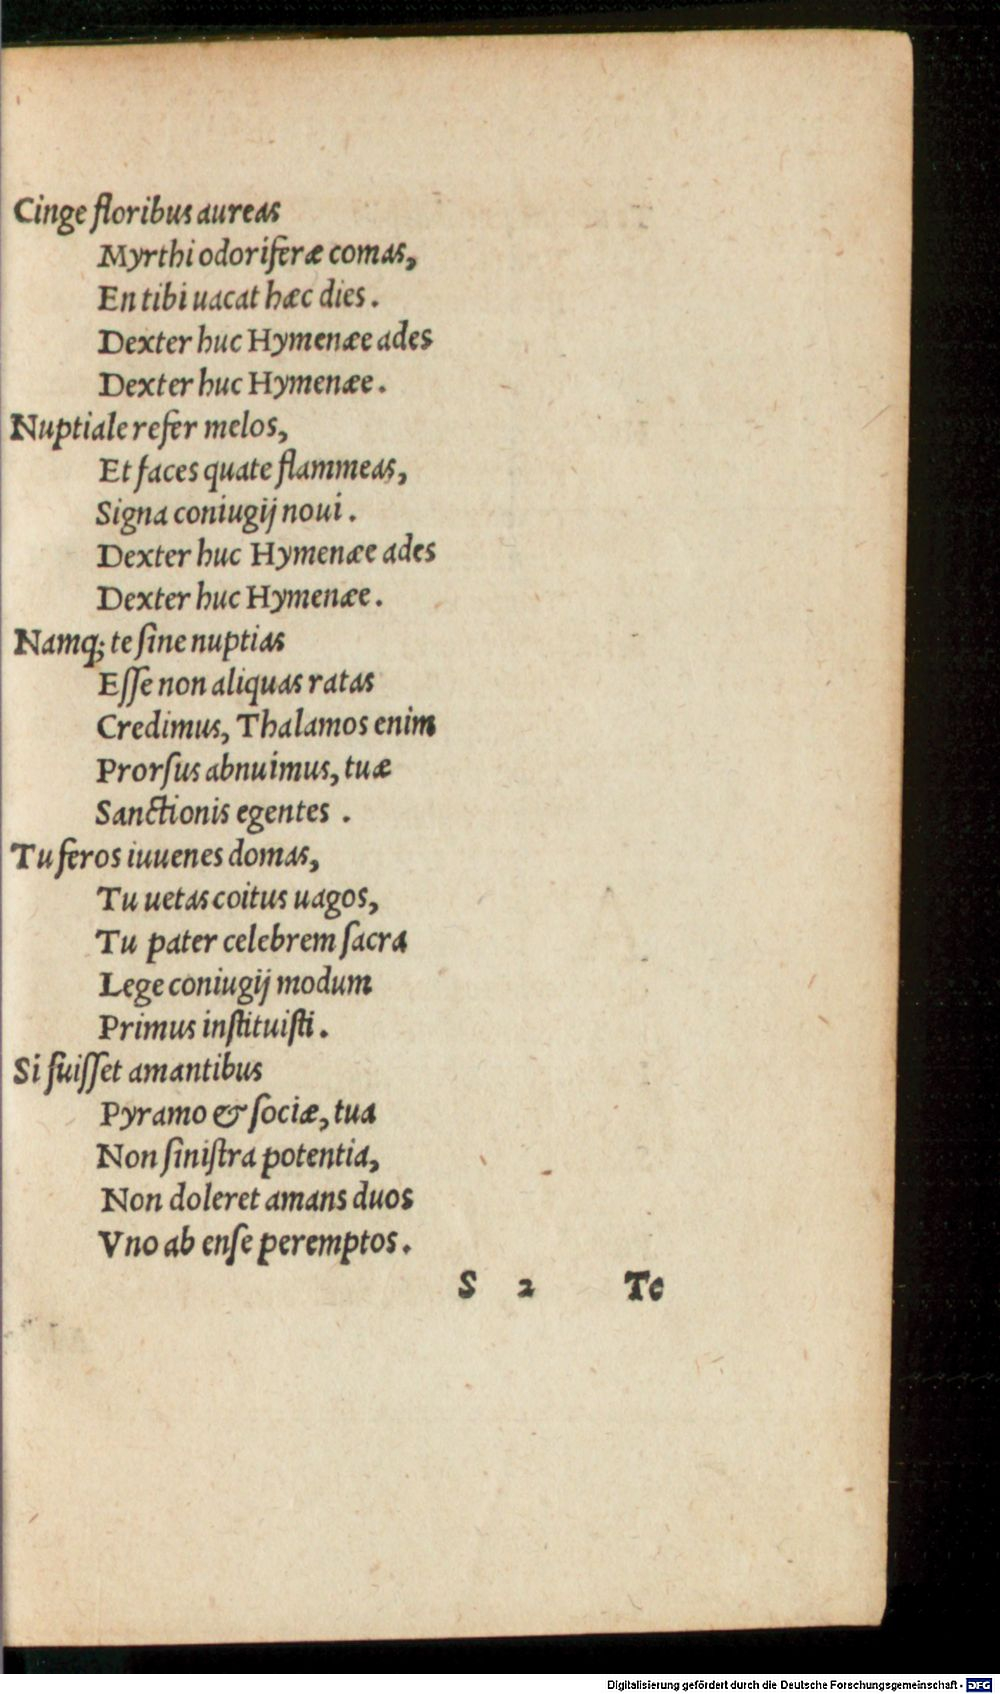 Cinge floribus aureas
Myrthi odoriferæ comas,
En tibi uacat hæc dies.
Dexter huc Hymenæe ades
Dexter huc Hymenæe.
Nuptiale refer melos,
Et faces quate flammeas,
Signa coniugij noui.
Dexter huc Hymenæe ades
Dexter huc Hymenæe.
Namq; te ſine nuptias
Eſſe non aliquas ratas
Credimus, Thalamos enim
Prorſus abnuimus, tuæ
Sanctionis egentes.
Tu feros iuuenes domas,
Tu uetas coitus uagos,
Tu pater celebrem ſacra
Lege coniugij modum
Primus inſtituiſti.
Si fuiſſet amantibus
Pyramo & ſociæ, tua
Non ſiniſtra potentia,
Non doleret amans duos
Vno ab enſe peremptos.
S 2 Te
Digitalisierung gefördert durch die Deutsche Forschungsgemeinschaft - DFG